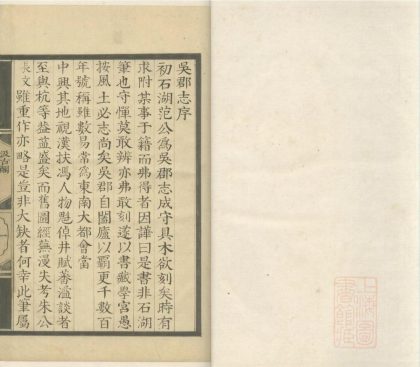 吳郡志序
初石湖范公為吳郡志成守具木欲刻矣時有
求附某事于籍而弗得者因譁曰是書非石湖
筆也守憚莫敢辨亦弗敢刻遂以書藏學宮愚
按風土必志尚矣吳郡自闔廬以霸更千數百
年號稱雖數易常為東南大都會當
中興其地視漢扶馮人物魁倬井賦蕃溢談者
至與杭等蓋益盛矣而舊圖經蕪漫失考朱公
長文雖重作亦略是豈非大缺者何幸此筆屬
汲古閣
上海圖
書館藏